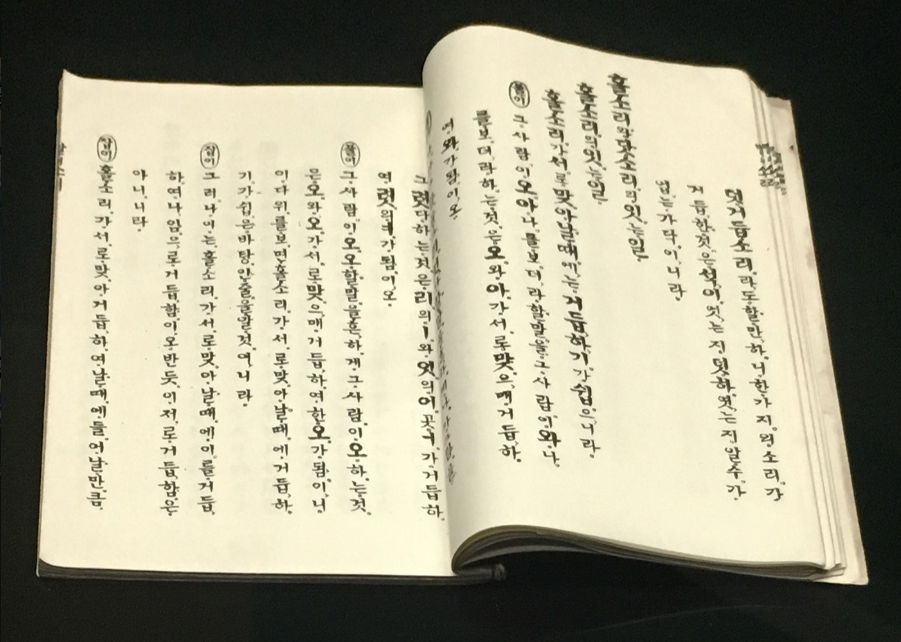 덧거듭소리라도할만하니한가지의소리가
거듭한것은석이엇는지덧하엿는지알수가
업는가닥이니라
홀소리와닷소리의잇는일
홀소리의잇는일
홀소리가서로맞아날때에는거듭하기가쉽으니라
풀이 그사람이오아나를보더라할말을그사람이와나
를보더라하는것은오와아가서로맞으매거듭하
여와가됨이오
그렷다하는것은리의ㅣ와엇의어곳ㅓ가거듭하
여렷의ㅕ가됨이오
풀이 그사람이오오할말을흔하게그사람이오하는것
은오와오가서로맞으매거듭하여한오가됨이니
이다위를보면홀소리가서로맞아날때에거듭하
기가쉽은바탕안줄을알것이니라
잡이 그러나이는홀소리가서로맞아날때에이를거듭
하여나임으로거듭함이오반듯이저로거듭함은
아니니라
잡이 홀소리가서로맞아거듭하여날때에들어날만큼